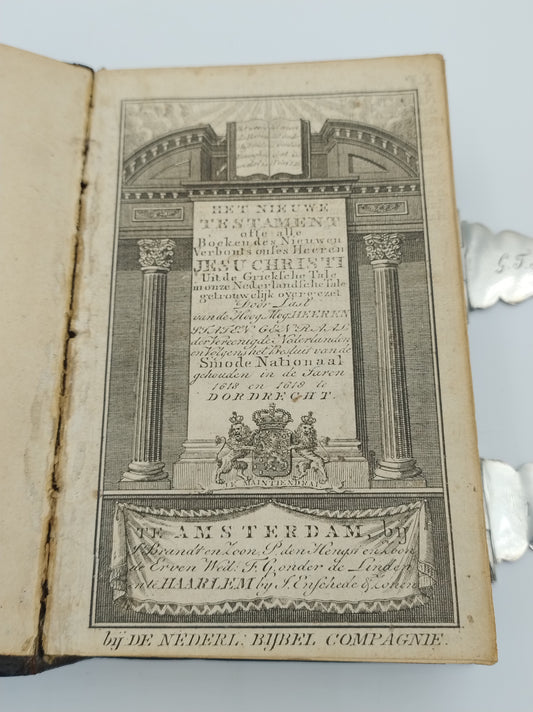 HET NIEUWE
TESTAMENT
ofte alle
Boeken des Nieuwen
Verbonts onses Heeren
JESU CHRISTI
Uit de Grieksche Tale
in onze Nederlandsche tale
getrouwelijk overgezet
Door Last
van de Hoog Mog: HEEREN
STATEN GENERAAL
der Vereenigde Nederlanden
en Volgens het Besluit van de
Sinode Nationaal
gehouden in de Jaren
1618 en 1619 te
DORDRECHT.
JE MAINTIENDRAI
TE AMSTERDAM, bij
P. Brandt en Zoon, P. den Hengst en Zoon
de Erven Wed: F. G. onder de Linden
en te HAARLEM by J. Enschede & Zonen
bij DE NEDERL: BIJBEL COMPAGNIE.
G.T.